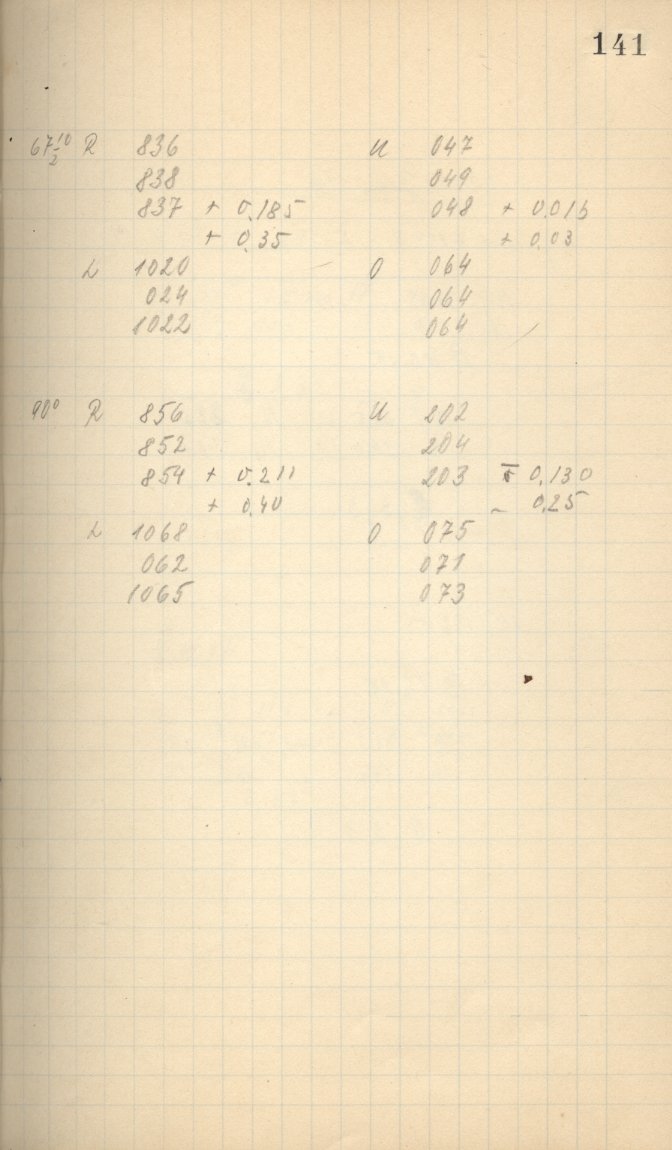 141
67 1/2° R 836 U 047
838 049
837 + 0.185 048 + 0.016
+ 0.35 + 0.03
L 1020 O 064
024 064
1022 064
90° R 856 U 202
852 204
854 + 0.211 203 - 0.130
+ 0.40 - 0.25
L 1068 O 075
062 071
1065 073